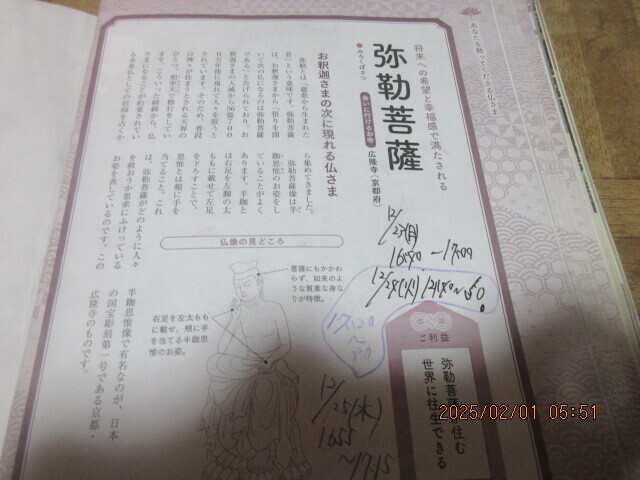 あなたを救ってくださる仏さま
将来への希望と幸福感で満たされる
弥勒菩薩
みろくぼさつ
会いに行けるお寺
広隆寺(京都府)
お釈迦さまの次に現れる仏さま
弥勒とは「慈悲から生まれた
者」という意味です。弥勒菩薩
は、お釈迦さまから「悟りを開
いて次の仏になるのは弥勒菩薩
である」と告げられており、お
釈迦さまの入滅から56億700
0万年後に現れて人々を救うと
されています。そのため、普段
は神々が住まうとされる天界の
ひとつ、兜率天で修行をしてい
ます。こういった経緯から、仏
さまになることが約束されてい
る未来仏としての信仰を古くか
ら集めてきました。
弥勒菩薩像は半
跏思惟のお姿をし
ていることがよく
あります。半跏と
は右足を左脚の太
ももに載せて左足
をおろすことで、
思惟とは頬に手を
当てること。これ
は、弥勒菩薩がどのように人々
を救おうか思索にふけっている
お姿を表しているのです。この
半跏思惟像で有名なのが、日本
の国宝彫刻第一号である京都・
広隆寺のものです。
仏像の見どころ
菩薩にもかかわ
らず、如来のよ
うな質素な身な
りが特徴。
右足を左太もも
に載せ、頬に手
を当てる半跏思
惟のお姿。
ご利益
弥勒菩薩が住む
世界に往生できる
12/23(月)
~17:09
17:20
~50
12/25(木)
1655
~17:15
2025/02/01 05:51